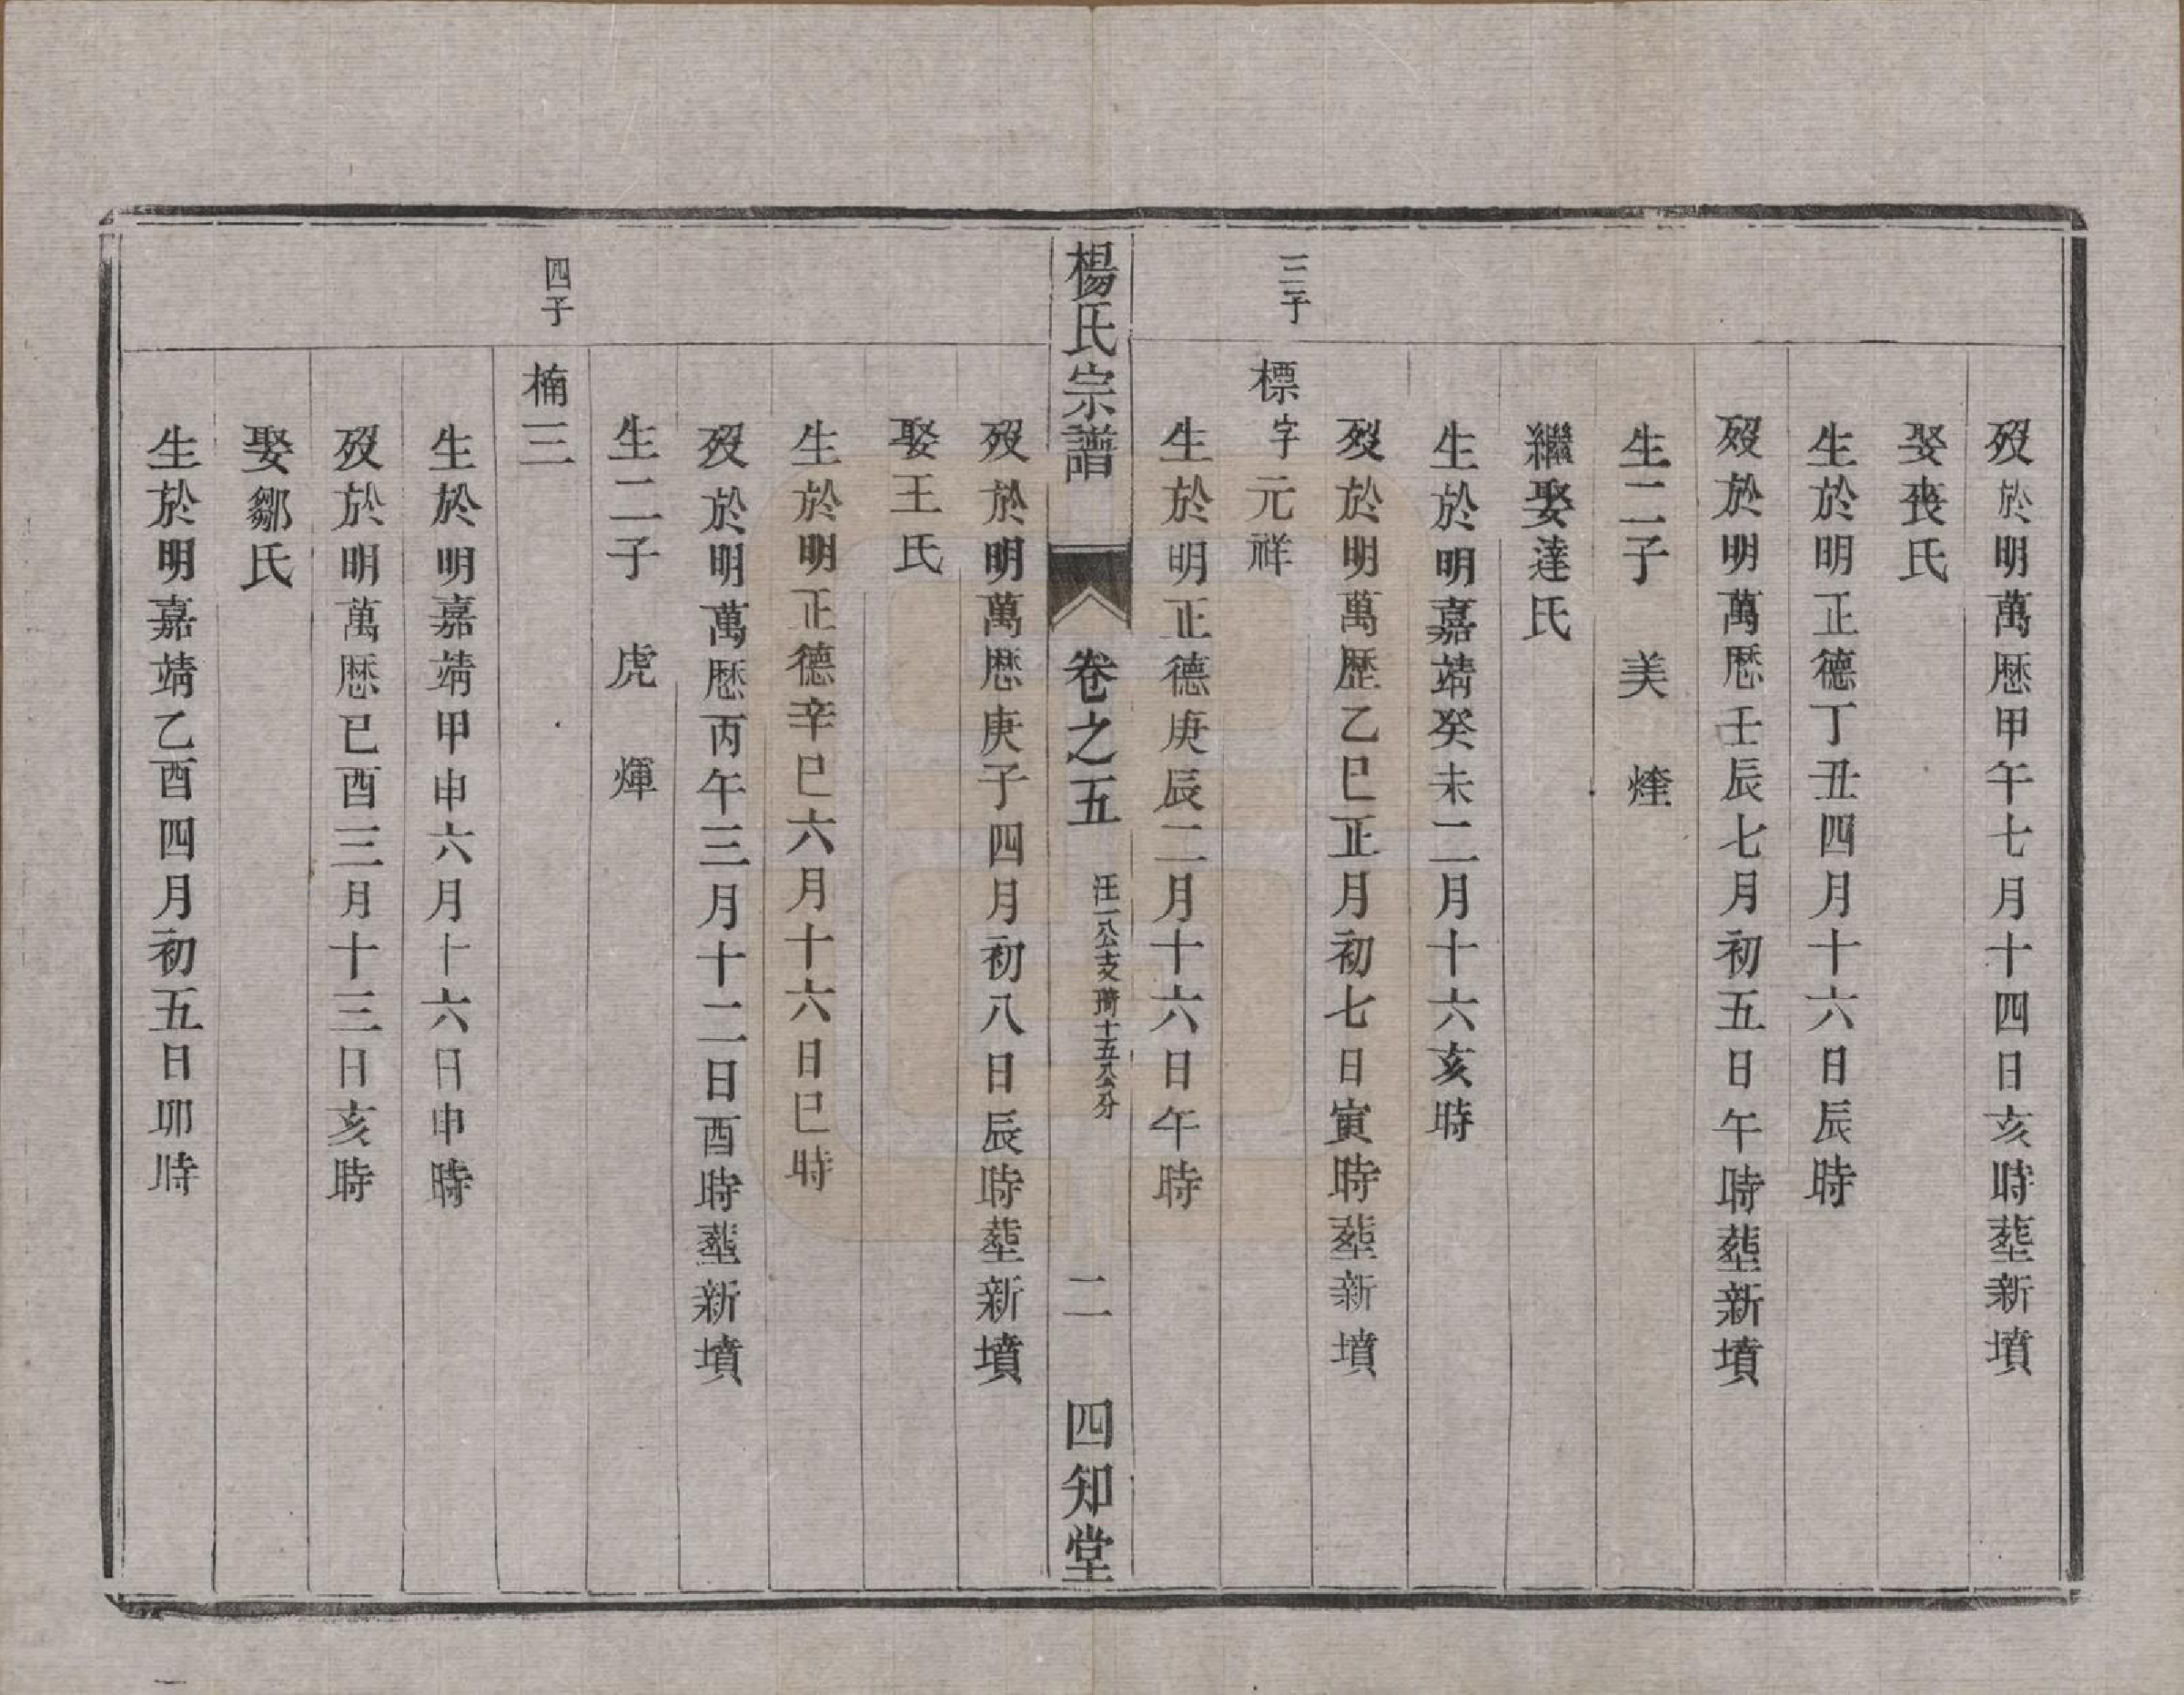 歿於明萬厯甲午七月十四日亥時塟新墳
娶喪氏
生於明正德丁丑四月十六日辰時
歿於明萬厯壬辰七月初五日午時塟新墳
生二子 美 煃
繼娶逹氏
生於明嘉靖癸未二月十六亥時
歿於明萬歷乙巳正月初七日寅時塟新墳
三子 標字元祥
生於明正德庚辰二月十六日午時
楊氏宗譜 卷之五 汪一公支琦十五公分 二 四知堂
歿於明萬厯庚子四月初八日辰時塟新墳
娶王氏
生於明正德辛巳六月十六日巳時
歿於明萬厯丙午三月十二日酉時塟新墳
生二子 虎 煇
四子 楠三
生於明嘉靖甲申六月十六日申時
歿於明萬厯已酉三月十三日亥時
娶鄒氏
生於明嘉靖乙酉四月初五日卯時